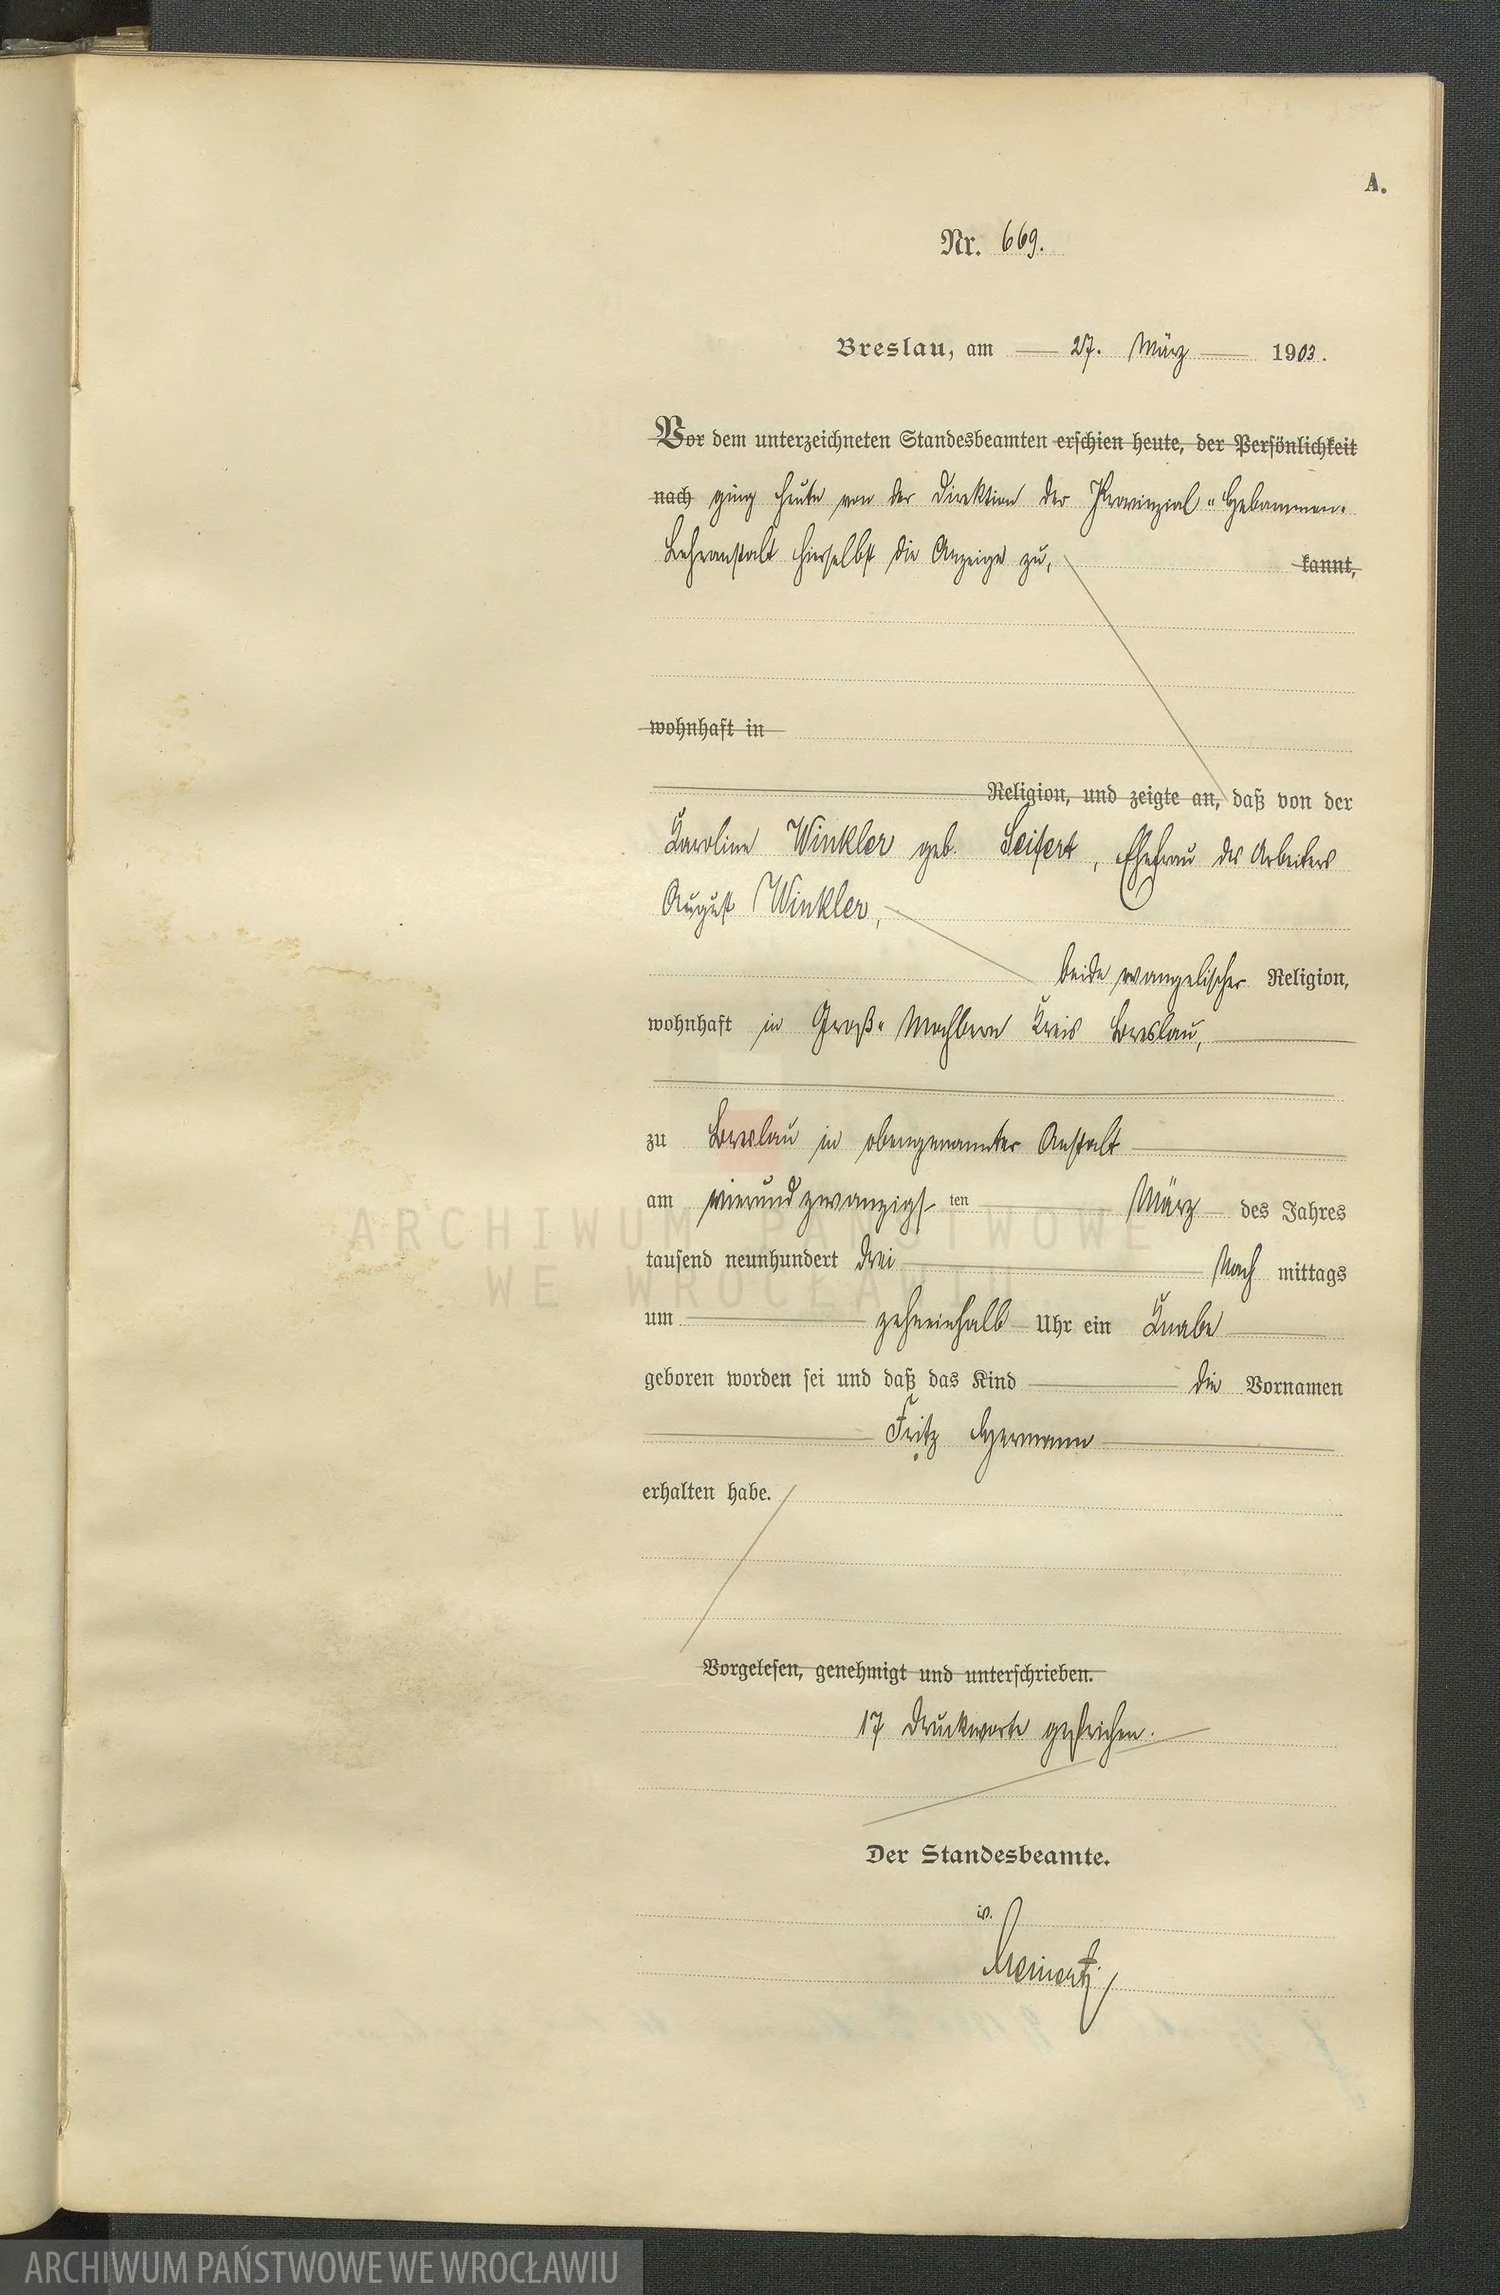 A.
Nr. 669.
Breslau, am 27. März 1903.
Vor dem unterzeichneten Standesbeamten erschien heute, der Persönlichkeit
nach ging heute von der Direktion der Provinzial-Hebammen-
Lehranstalt hierselbst die Anzeige zu, kannt,
wohnhaft in
Religion, und zeigte an, daß von der
Karoline Winkler geb. Seifert, Ehefrau des Arbeiters
August Winkler,
beide evangelischer Religion,
wohnhaft in Groß-Mochbern Kreis Breslau,
zu Breslau in obengenannter Anstalt
am vierundzwanzigsten März des Jahres
tausend neunhundert drei Nachmittags
um zehneinhalb Uhr ein Knabe
geboren worden sei und daß das Kind die Vornamen
Fritz Hermann
erhalten habe.
Vorgelesen, genehmigt und unterschrieben.
17 Druckworte gestrichen.
Der Standesbeamte.
ARCHIWUM PAŃSTWOWE
WE WROCŁAWIU
ARCHIWUM PAŃSTWOWE WE WROCŁAWIU